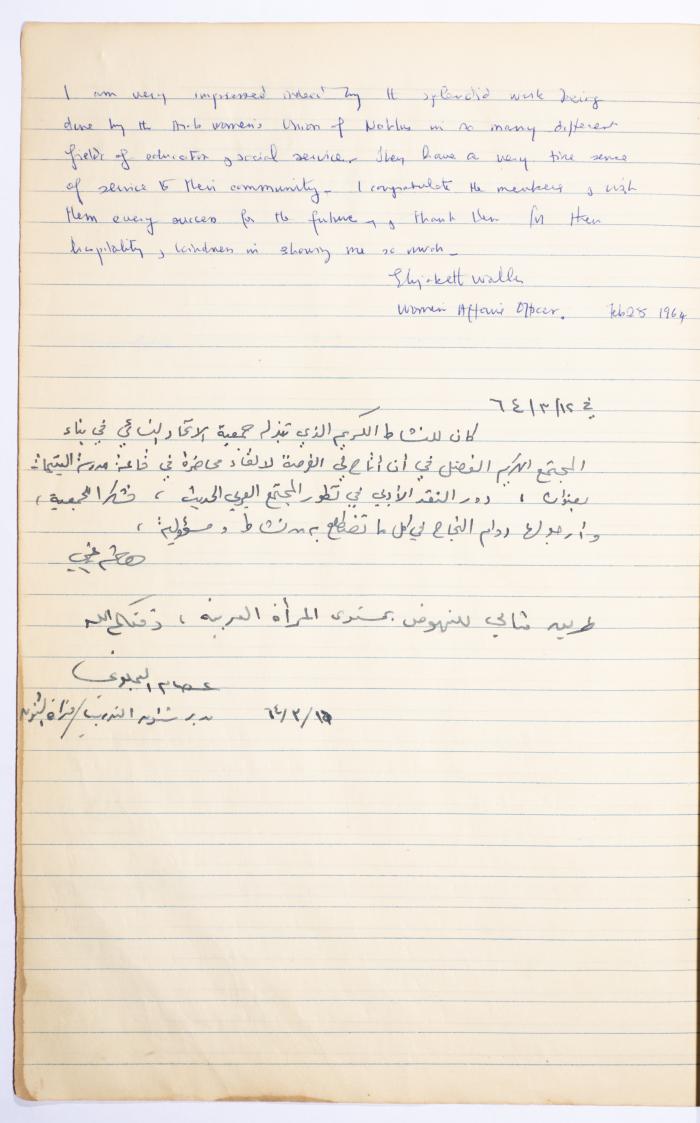 I am very impressed indeed by the splendid work being
done by the Arab Women's Union of Nablus in so many different
fields of education & social service. They have a very fine sense
of service to their community. I congratulate the members & wish
them every success for the future & thank them for their
hospitality & kindness in showing me so much.
Women Affairs Officer. Feb 28 1964
في ١٢/٣/٦٤
كان للنشاط الكريم الذي تبذله جمعية الاتحاد النسائي في بناء
المجتمع الكريم الفضل في أن أتاح لي الفرصة لالقاء محاضرة في قاعة مدرسة اليتيمات
بعنوان : دور النقد الأدبي في تطور المجتمع العربي الحديث ، فشكرا للجمعية ،
وأرجو لها دوام النجاح في كل ما تضطلع به من نشاط ومسؤولية ،
مثالي للنهوض بمستوى المرأة العربية ، وفقكم الله
عصام
مدير التدريب / ٦٤/٣/